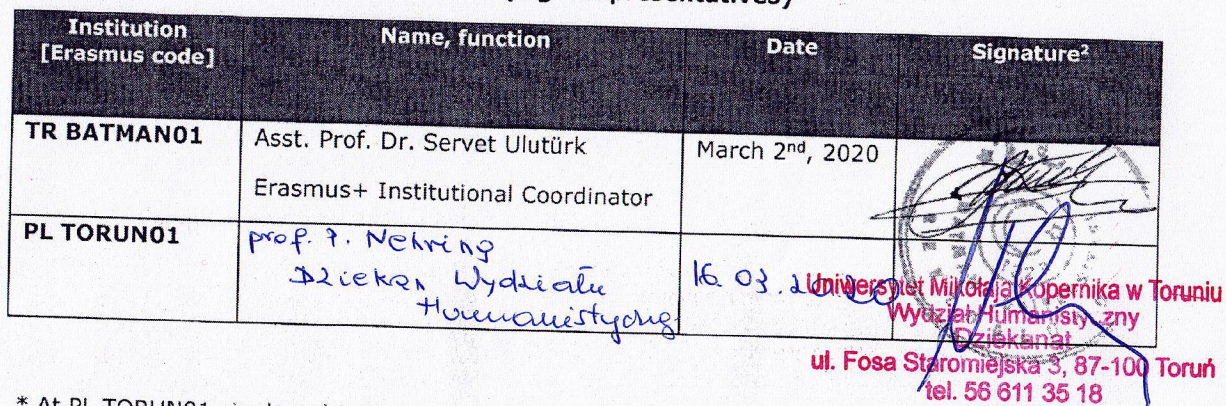 Institution
[Erasmus code]
Name, function
Date
Signature²
TR BATMAN01
Asst. Prof. Dr. Servet Ulutürk
Erasmus+ Institutional Coordinator
March 2nd, 2020
PL TORUN01
prof. P. Nehring
Dziekan Wydziału
Humanistyczneg
16. 03. 2020
Uniwersytet Mikołaja Kopernika w Toruniu
Wydział Humanistyczny
Dziekanat
ul. Fosa Staromiejska 3, 87-100 Toruń
tel. 56 611 35 18
* At PL TORUN01